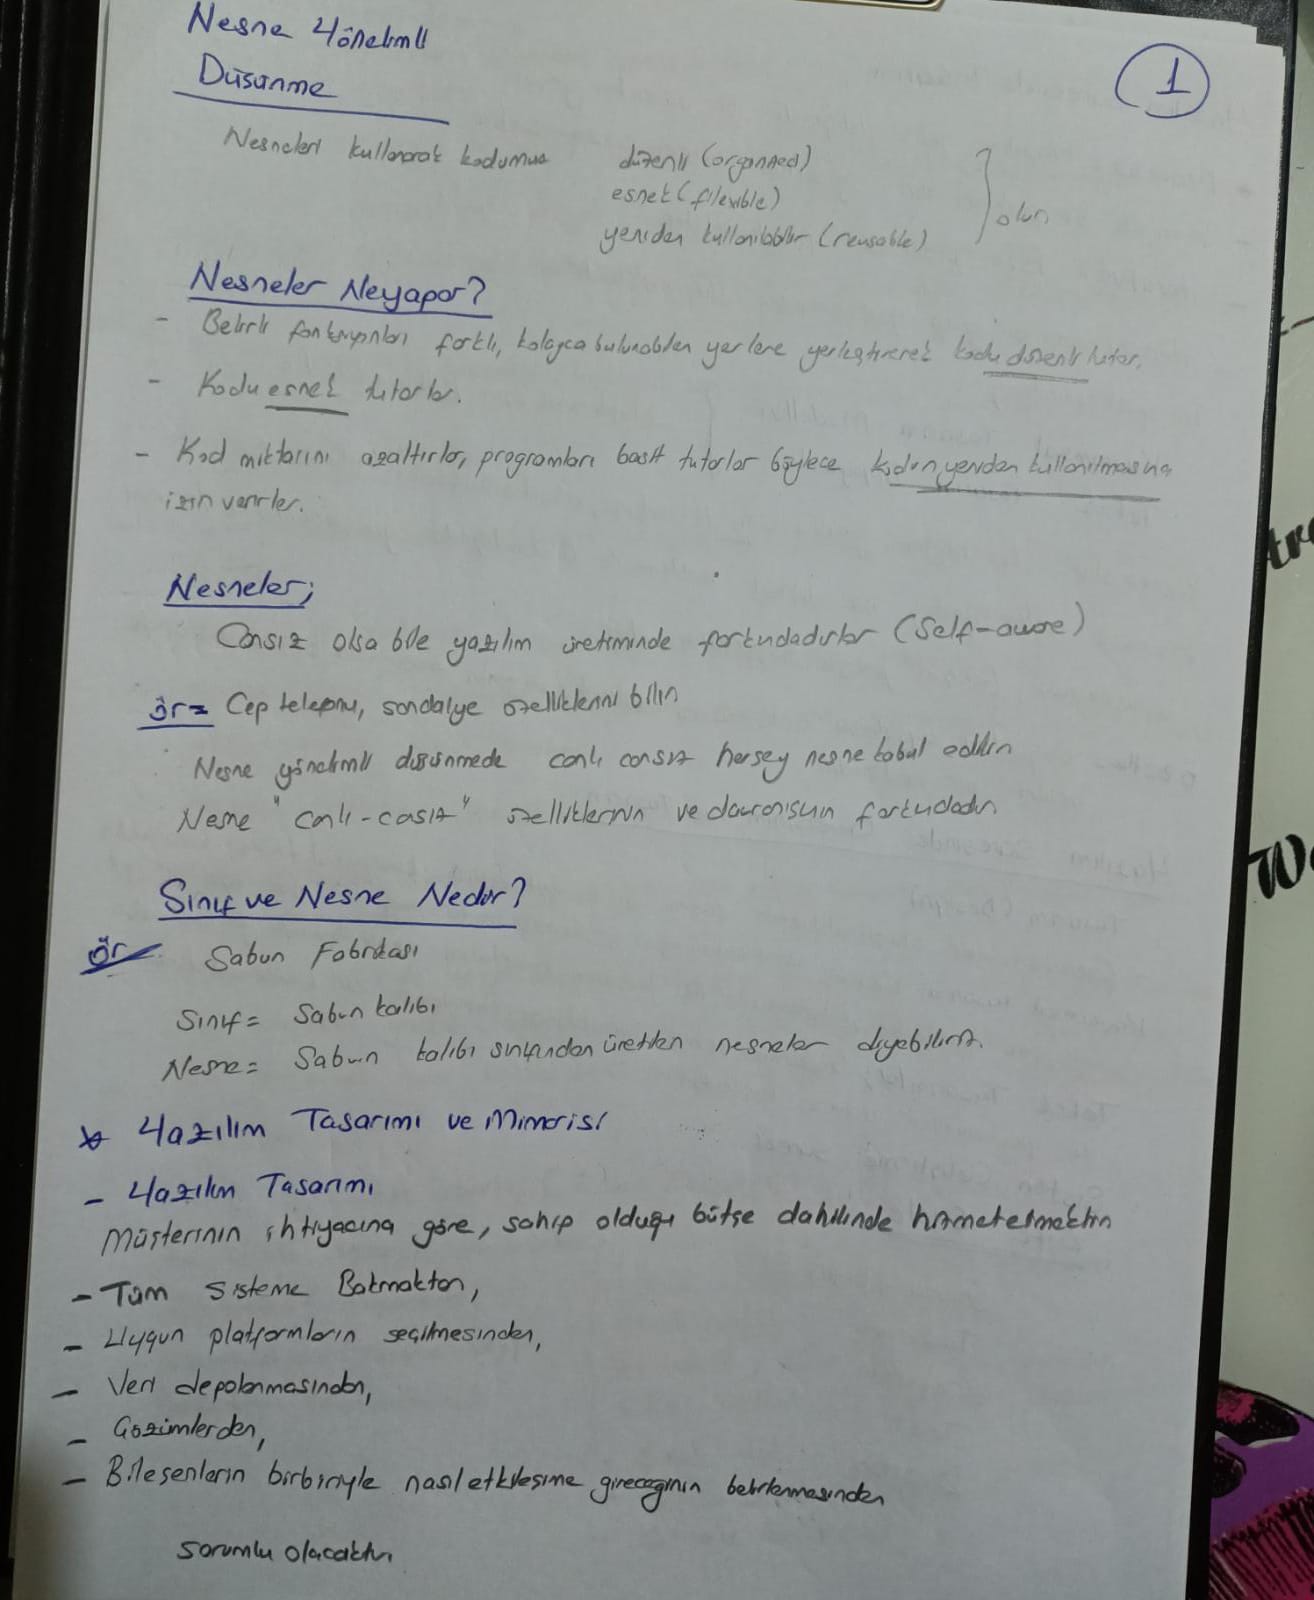 Nesne Yönelimli
Düşünme
1
Nesneleri kullanarak kodumuz
düzenli (organized)
esnek (flexible)
yeniden kullanılabilir (reusable)
olur
Nesneler Neyapar?
- Belirli fonksiyonları farklı, kolayca bulunabilen yerlere yerleştirerek kodu düzenli tutar.
- Kodu esnek tutarlar.
- Kod miktarını azaltırlar, programları basit tutarlar böylece kodun yeniden kullanılmasına
izin verirler.
Nesneler;
Cansız olsa bile yazılım üretiminde farkındadırlar (Self-aware)
ör= Cep telefonu, sandalye özelliklerini bilir
Nesne yönelimli düşünmede canlı cansız herşey nesne kabul edilir
Nesne "canlı-casız" özelliklerinin ve davranışının farkındadır
Sınıf ve Nesne Nedir?
ör Sabun Fabrikası
Sınıf = Sabun kalıbı
Nesne = Sabun kalıbı sınıfından üretilen nesneler diyebiliriz.
* Yazılım Tasarımı ve Mimarisi
- Yazılım Tasarımı
Müşterinin ihtiyacına göre, sahip olduğu bütçe dahilinde hizmetetmektir
- Tüm sisteme Bakmaktan,
- Uygun platformların seçilmesinden,
- Veri depolanmasından,
- Çözümlerden,
- Bileşenlerin birbiriyle nasıl etkileşime gireceğinin belirlenmesinden
sorumlu olacaktır